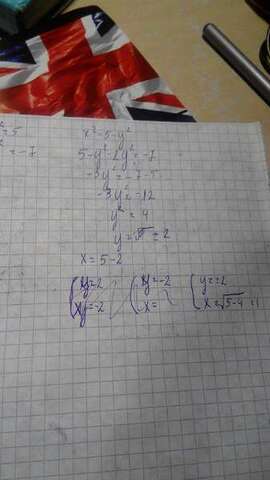 ²=5
² = -7
x² = 5 - y²
5 - y² - 2y² = -7
-3y² = -7-5
-3y² = -12
y² = 4
y = ±2
x = 5 - 2
y=2
y=-2
x =
y=±2
x = √5-4 =